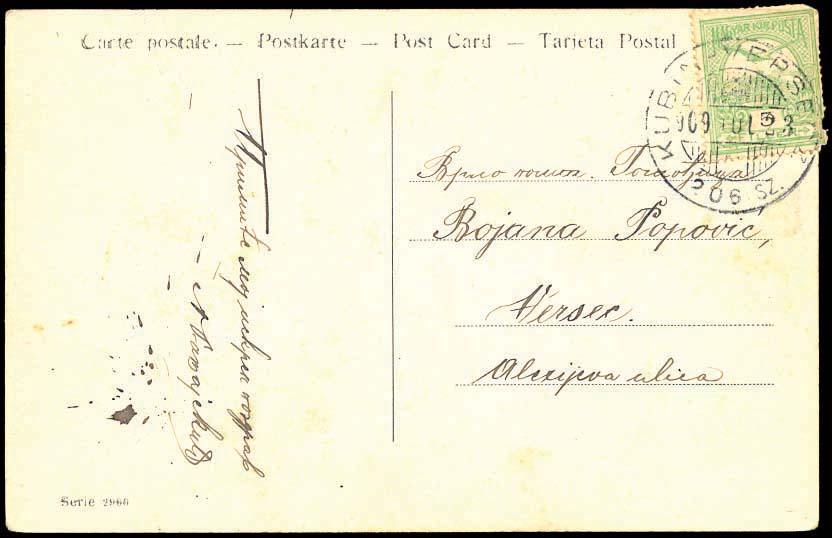 Carte postale. — Postkarte — Post Card — Tarjeta Postal
MAGYAR KIR. POSTA
KUBIN VERSEC
909 JUL 23
206 SZ.
Врло помоз. Госпођица
Bojana Popović,
Versec.
Alexijeva ulica
Примите мој искрен поздрав
Serie 2966